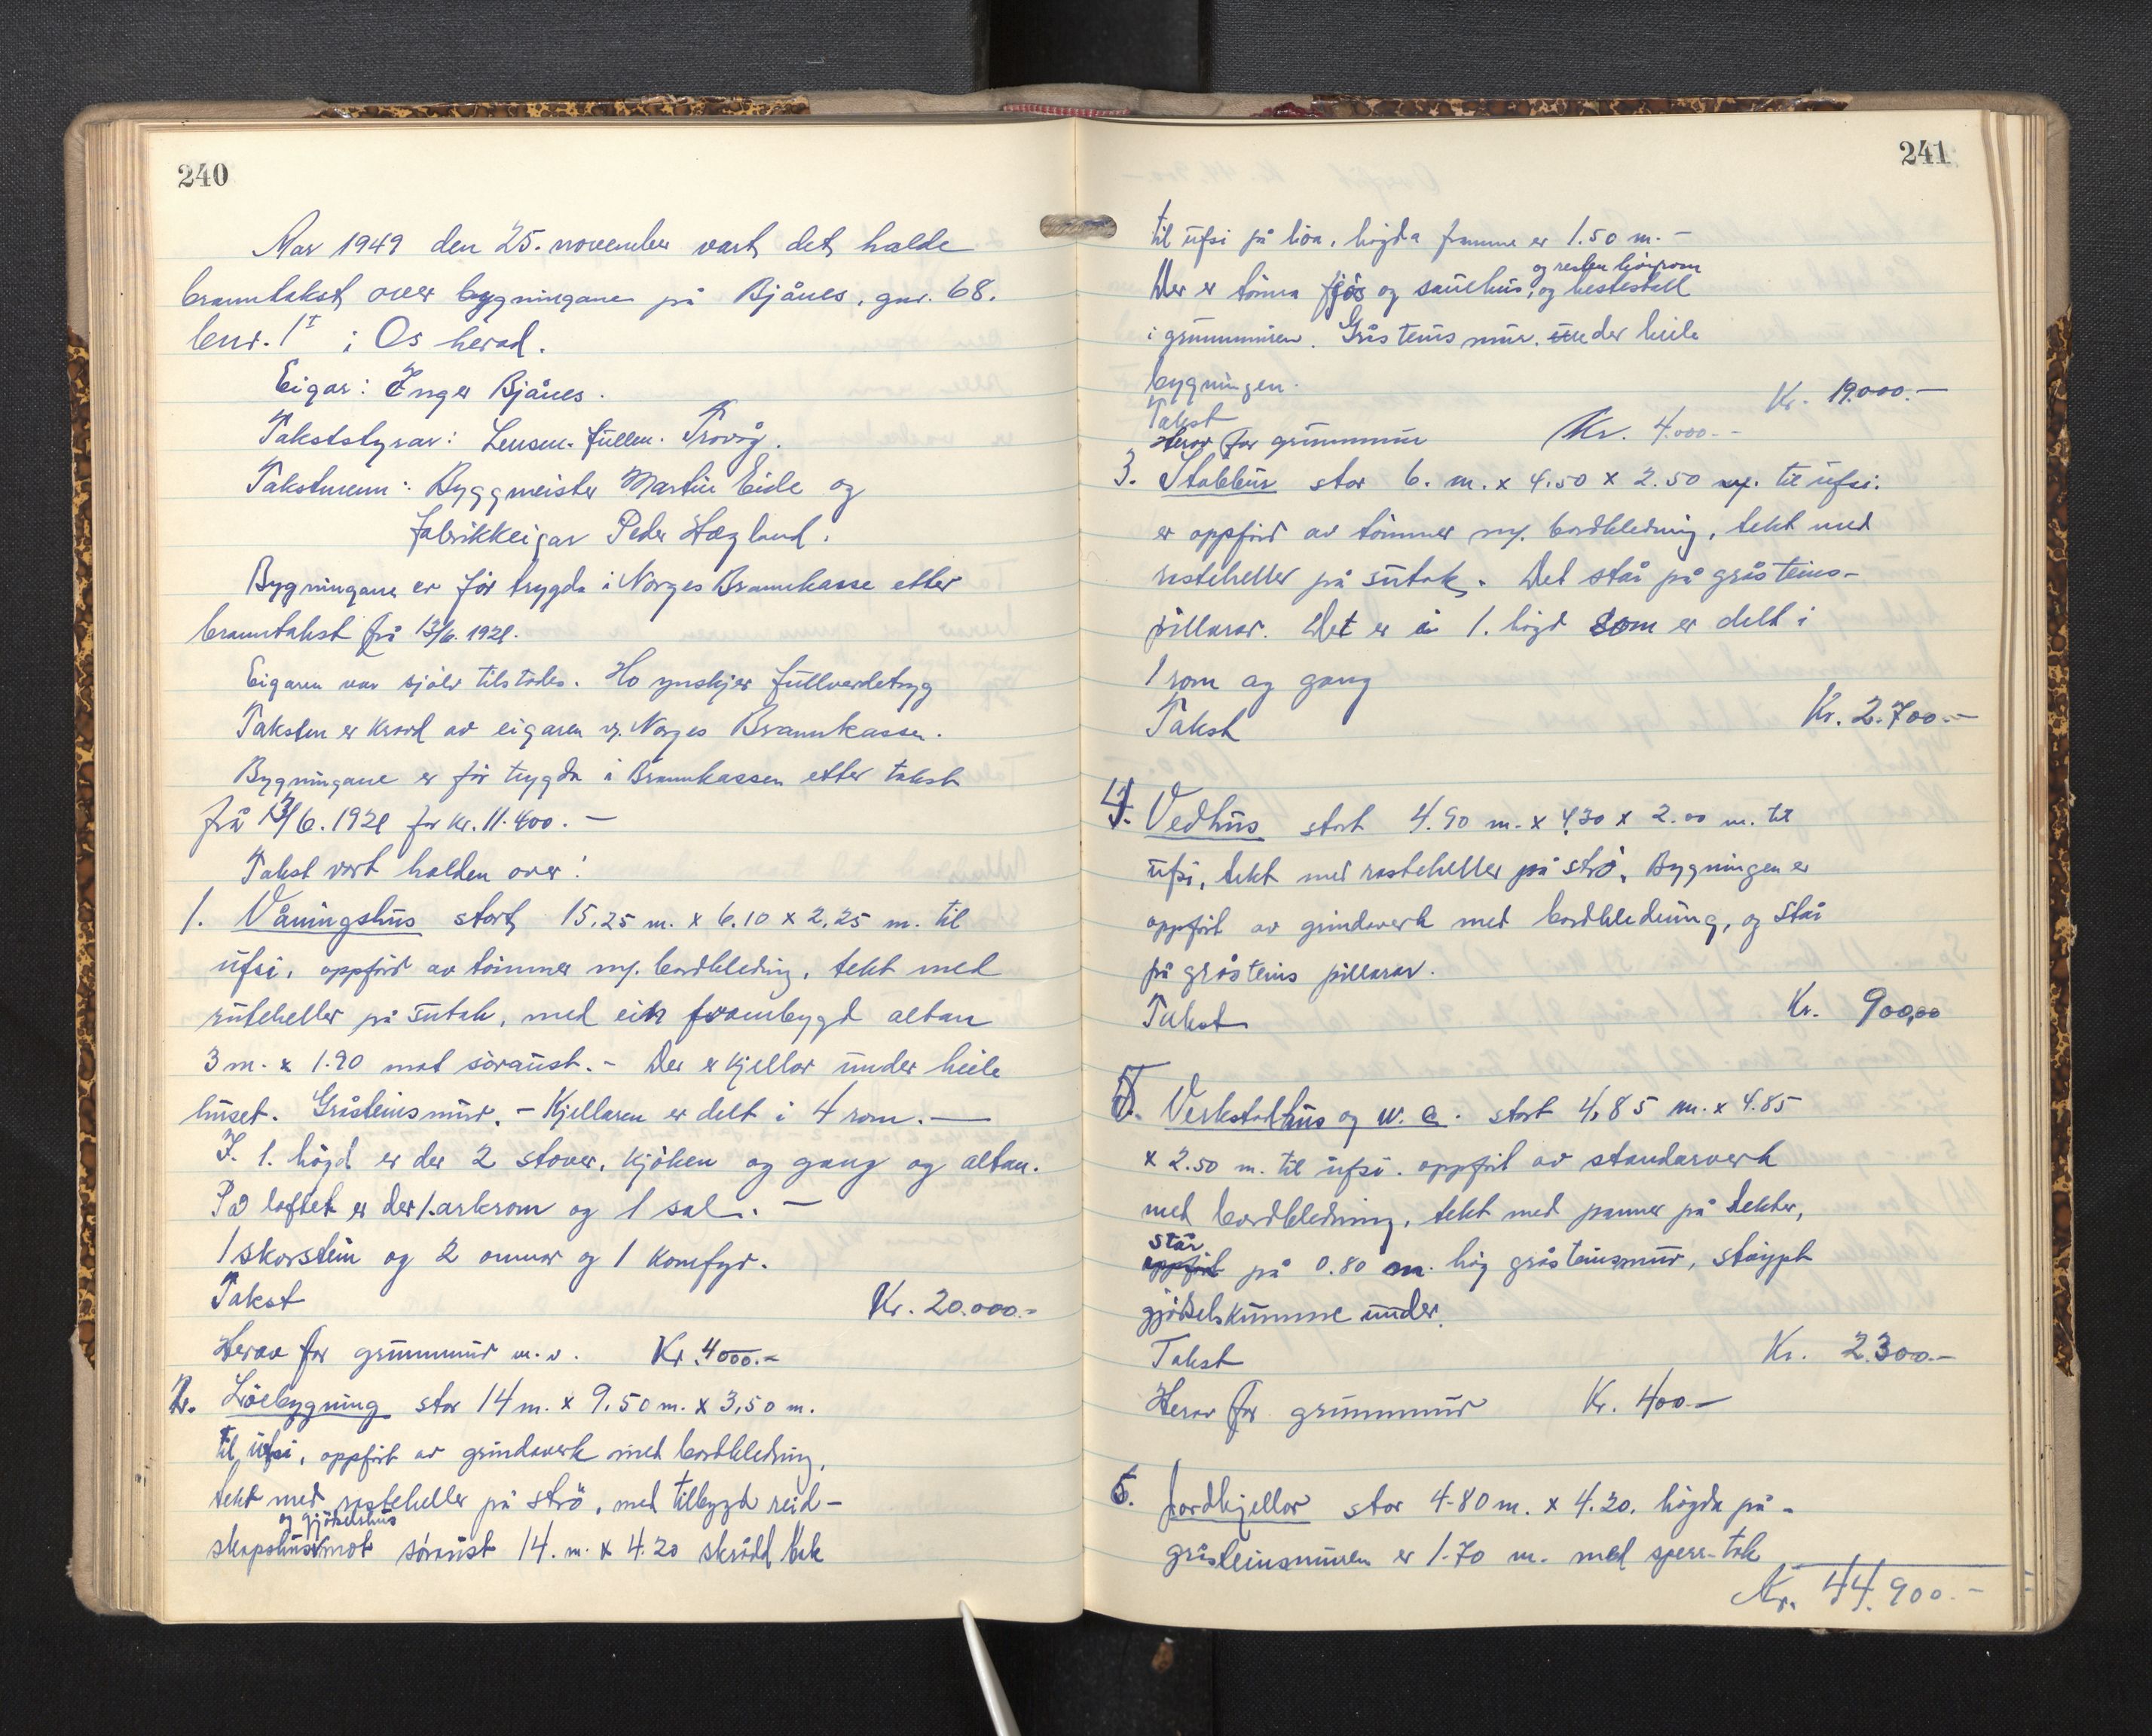 240
Aar 1949 den 25. november vart det halde
branntakst over bygningane på Bjånes, gnr. 68.
bnr. 1 I i Os herad.
Eigar: Inger Bjånes.
Takststyrar: Lensm. fullm. Trovåg.
Takstmenn: Byggmeister Martin Eide og
fabrikkeigar Peder Hægland.
Bygningane er før trygda i Norges Brannkasse etter
branntakst frå 13/6. 1921.
Eigaren var sjølv tilstades. Ho ynskjer fullverdetrygd
Taksten er kravd av eigaren og Norges Brannkassen.
Bygningane er før trygda i Brannkassen etter takst
frå 13/6. 1921 for kr. 11.400.-
Takst vart halden over:
1. Våningshus stort 15,25 m. x 6.10 x 2,25 m. til
ufsi, oppførd av tømmer m/ bordkledning, tekt med
ruteheller på sutak, med ein frambygd altan
3 m. x 1.90 mot søraust.- Der er kjellar under heile
huset. Gråsteinsmur.- Kjellaren er delt i 4 rom.-
I. 1. høgd er der 2 stover, kjøken og gang og altan.
På loftet er der 1. arkrom og 1 sal.-
1 skorstein og 2 omnar og 1 komfyr.
Takst Kr. 20.000.-
Herav for grunnmur m.v. Kr. 4000.-
2. Löebygning stor 14 m. x 9,50 m. x 3,50 m.
til ufsi, oppført av grindverk med bordkledning,
tekt med rasteheller på strø, med tilbygd reid-
og gjødselshus
skapshus mot søraust 14. m. x 4.20 skrådd tak
241
til ufsi på löa, högda framme er 1.50 m.-
og resten høyrom
Der er tömra fjös og sauehus, og hestestall
i grunnmuren. Gråsteins mur under heile
bygningen.
Takst Kr. 19.000.-
Herav for grunnmur Kr. 4.000.-
3. Stabbur stor 6. m. x 4.50 x 2.50 m. til ufsi.
er oppførd av tömmer m/. bordkledning, tekt med
rasteheller på sutak. Det står på gråsteins-
pillarar. Det er i 1. högd som er delt i
1 rom og gang
Takst Kr. 2.700.-
4. Vedhus stort 4.90 m. x 4,30 x 2.00 m. til
ufsi, tekt med rasteheller på strö, Bygningen er
oppført av grindverk med bordkledning, og står
på gråsteins pillarar.
Takst Kr. 900,00
5. Verkstadhus og w.c. stort 4,85 m. x 4.85
x 2.50 m. til ufsi. oppfört av standarverk
med bordkledning, tekt med panner på lekter,
står
oppført på 0.80 m. hög gråsteinsmur, støypt
gjødselskumme under.
Takst Kr. 2.300.-
Herav for grunnmur Kr. 400.-
6. Jordkjellar stor 4.80 m. x 4.20, högda på-
gråsteinsmuren er 1.70 m. med sperr-tak
Kr. 44.900.-